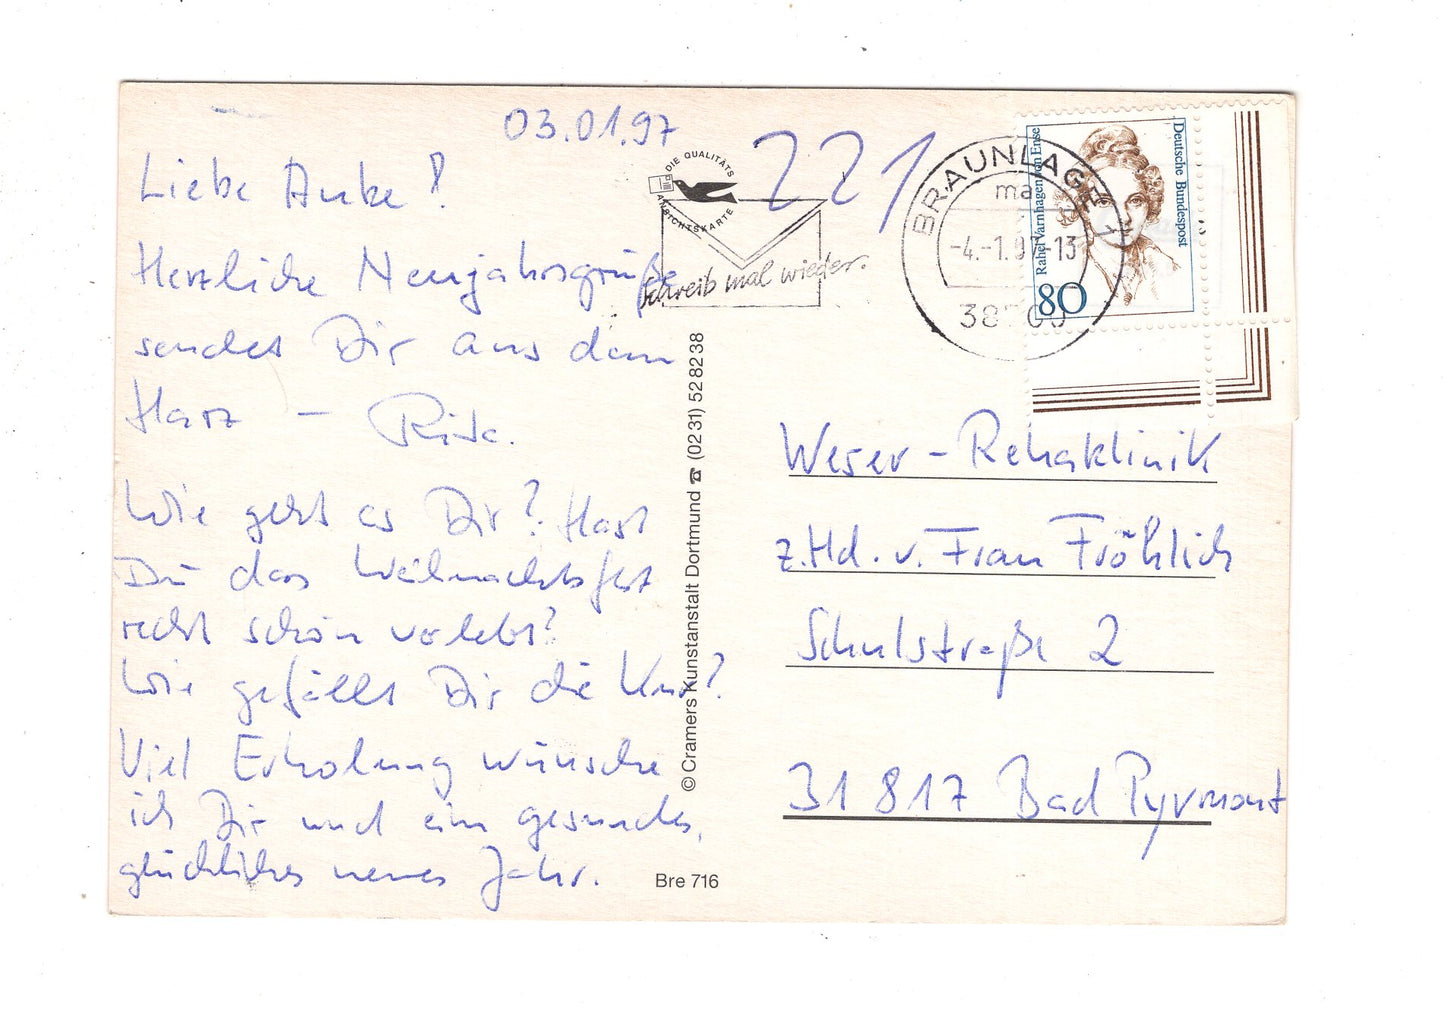 03.01.97
Liebe Anke!
Herzliche Neujahrsgrüße
sendet Dir aus dem
Harz – Rita.
Wie geht es Dir? Hast
Du das Weihnachtsfest
recht schön verlebt?
Wie gefällt Dir die Kur?
Viel Erholung wünsche
ich Dir und ein gesundes,
glückliches neues Jahr.
DIE QUALITÄTS
ANSICHTSKARTE
Schreib mal wieder.
221
BRAUNLAGE 1
ma
-4.-1.97-13
38700
Rahel Varnhagen von Ense
Deutsche Bundespost
80
© Cramers Kunstanstalt Dortmund ☎ (0231) 528238
Bre 716
Weser-Rehaklinik
z.Hd. v. Frau Fröhlich
Schulstraße 2
31 817 Bad Pyrmont